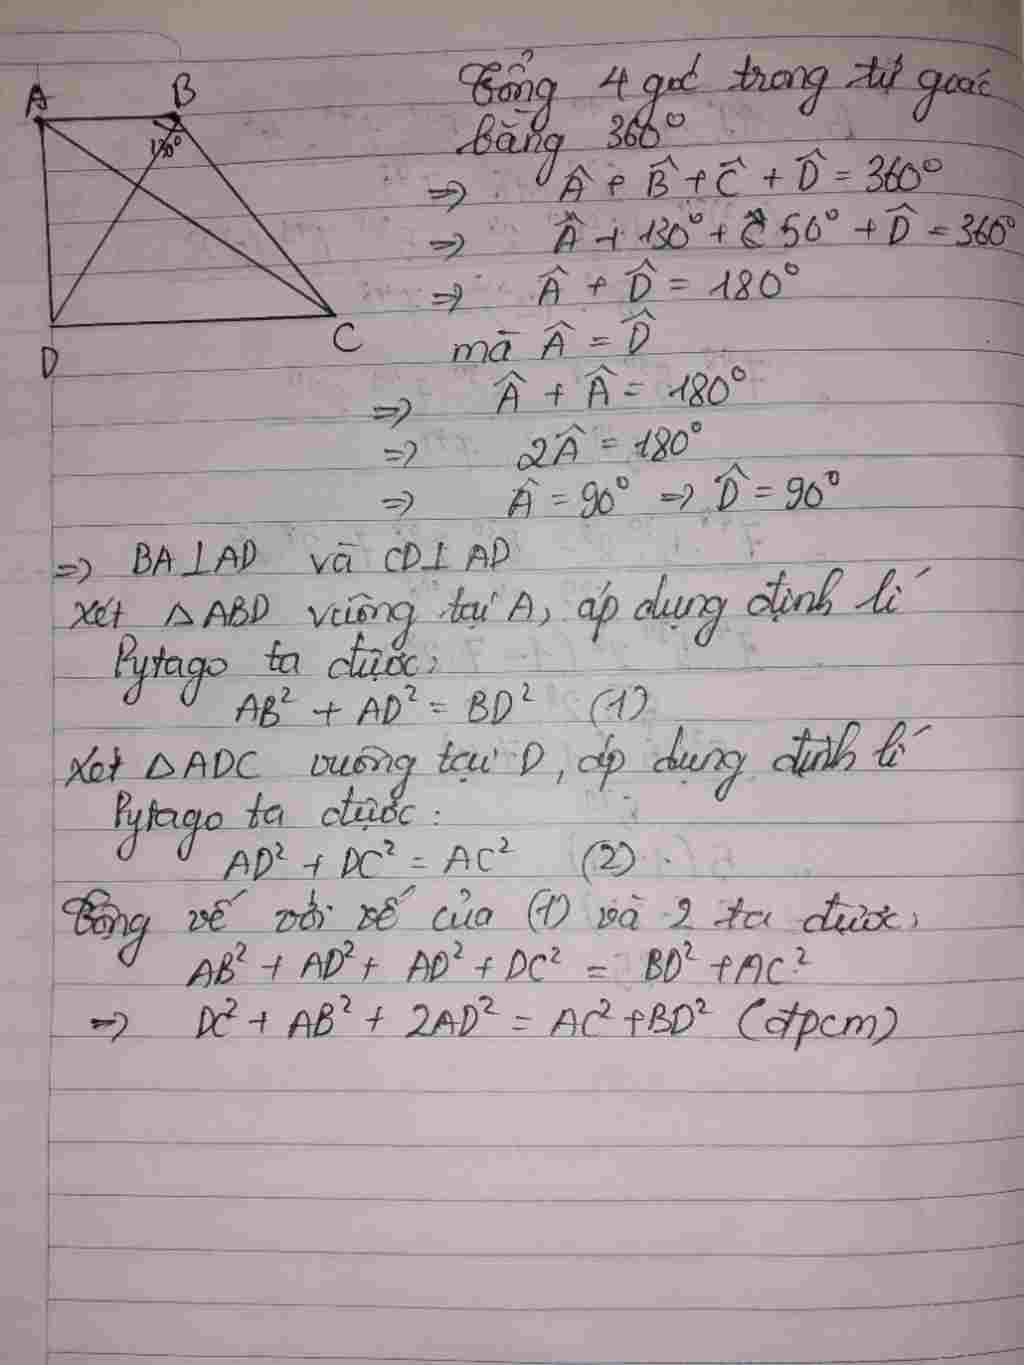 A B
130°
D C
Tổng 4 góc trong tứ giác
bằng 360°
=> Â + B̂ + Ĉ + D̂ = 360°
=> Â + 130° + 50° + D̂ = 360°
=> Â + D̂ = 180°
mà Â = D̂
=> Â + Â = 180°
=> 2Â = 180°
=> Â = 90° => D̂ = 90°
=> BA ⊥ AD và CD ⊥ AD
Xét △ABD vuông tại A, áp dụng định lí
Pytago ta được:
AB² + AD² = BD² (1)
Xét △ADC vuông tại D, áp dụng định lí
Pytago ta được:
AD² + DC² = AC² (2)
Cộng vế với vế của (1) và 2 ta được:
AB² + AD² + AD² + DC² = BD² + AC²
=> DC² + AB² + 2AD² = AC² + BD² (đpcm)